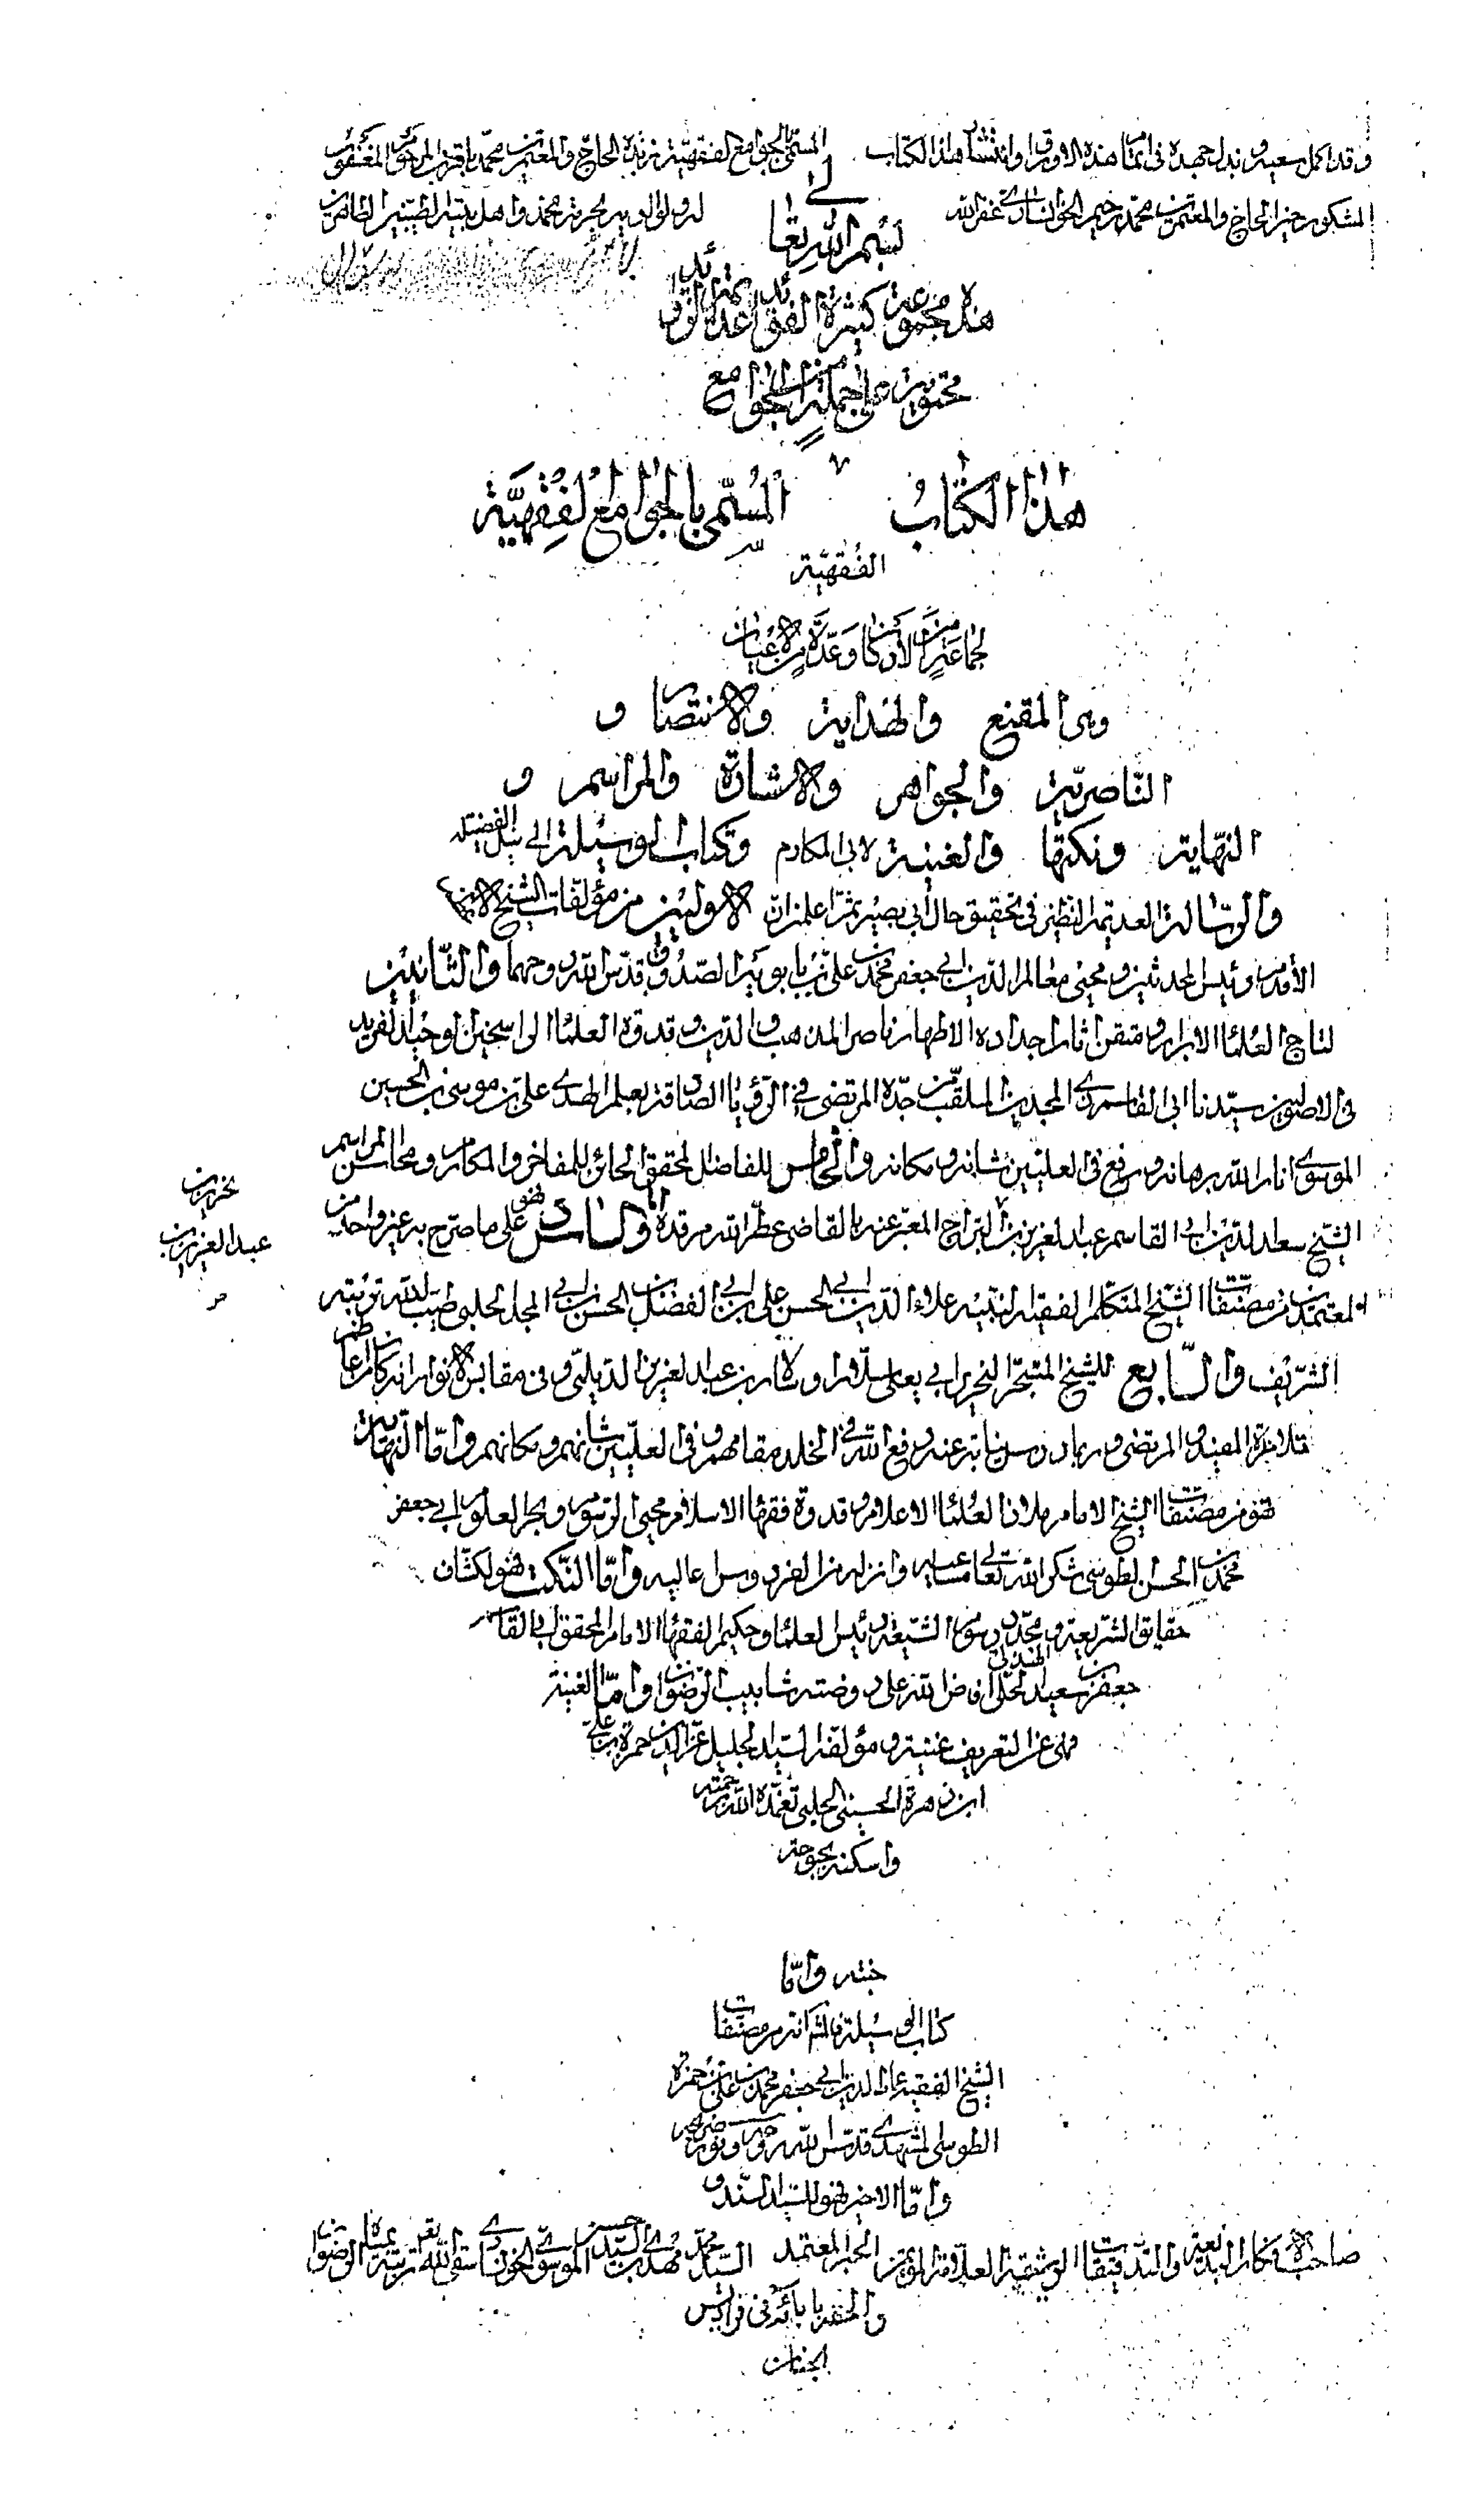 وقد اكمل سعيه وبذل جهده في اتمام هذه الاوراق وانتشار هذا الكتاب المسمى بالجوامع الفقهية زبدة الحاج والمعتمرين محمد باقر بن المرحوم المغفور
المشكور خير الحاج والمعتمرين محمد رحيم الخوانساري غفر الله له ولوالديه بحرمة محمد واهل بيته الطيبين الطاهرين
بسم الله تعالى
هذه مجموعة كثيرة الفوائد عديمة الزوائد
محتوية على جملة من الجوامع
هذا الكتاب المسمى بالجوامع الفقهية
الفقهية
لجماعة من الاركان وعدة من الاعيان
وهى المقنع والهداية والانتصار و
الناصرية والجواهر والاشارة والمراسم و
النهاية ونكتها والغنية لابى المكارم وكتاب الوسيلة الى نيل الفضيلة
والرسالة العديمة النظير في تحقيق حال ابي بصير ثم اعلم ان الاوليين من مؤلفات الشيخ
الأقدم رئيس المحدثين ومحيى معالم الدين ابي جعفر محمد بن على بن بابويه الصدوق قدس الله روحهما والثانيين
لتاج العلماء الابرار ومتقن اثار اجداده الاطهار ناصر المذهب والدين وقدوة العلماء الراسخين اوحيد الفريد
في الاصلين سيدنا ابى القاسم ذي المجدين الملقب من جده المرتضى في الرؤيا الصادقة بعلم الهدى على بن موسى بن الحسين
الموسوي انار الله برهانه ورفع في العليين شانه ومكانه والخامس للفاضل المحقق الحائز للمفاخر والمكارم ومحاسن المراسم
الشيخ سعد الدين ابى القاسم عبد العزيز بن البراج المعبر عنه بالقاضى عطر الله مرقده واما السادس فهو على ما صرح به غير واحد من
المعتمدين من مصنفات الشيخ المتكلم الفقيه النبيه علاء الدين ابى الحسن على بن ابى الفضل بن الحسن بن ابى المجد الحلبى طيب الله تربته
الشريف والسابع للشيخ المتبحر النحرير ابى يعلى سلار او سالار بن عبد العزيز الديلمى وفى مقابس الانوار انه كان من اعاظم
تلامذة المفيد والمرتضى وربما درس نيابة عنه ورفع الله فى الخلد مقامهم وفى العليين شانهم ومكانهم واما النهاية
فهو من مصنفات الشيخ الامام ملاذ العلماء الاعلام وقدوة فقهاء الاسلام محيى الرسوم وبحر العلوم ابى جعفر
محمد بن الحسن الطوسى شكر الله تعالى مساعيه وانزله من الفردوس اعاليه واما النكت فهو لكشاف
حقايق الشريعة ومجدد رسوم الشيعة رئيس العلماء وحكيم الفقهاء الامام المحقق ابى القاسم
جعفر بن سعيد الحلى الهذلى افاض الله على روضته شابيب الرضوان واما الغنية
فهى عن التعريف غنية ومؤلفه السيد الجليل عز الدين حمزة بن على
ابن زهرة الحسينى الحلبى تغمده الله برحمته
واسكنه بحبوحة
جنته واما
كتاب الوسيلة فالمشهور انه من مصنفات
الشيخ الفقيه عماد الدين ابى جعفر محمد بن على بن حمزة
الطوسى المشهدى قدس الله روحه ونور ضريحه
واما الاخير فهو للسيد السند و
صاحب الافكار البديعة والتدقيقات الوثيقة العلامة المؤتمن الحبر المعتمد السيد محمد مهدى بن السيد حسن الموسوى الخونساري سقى الله تربته بمياه الرضوان
والحقه بابائه فى فراديس
الجنان
نحرير بن
عبد العزيز بن